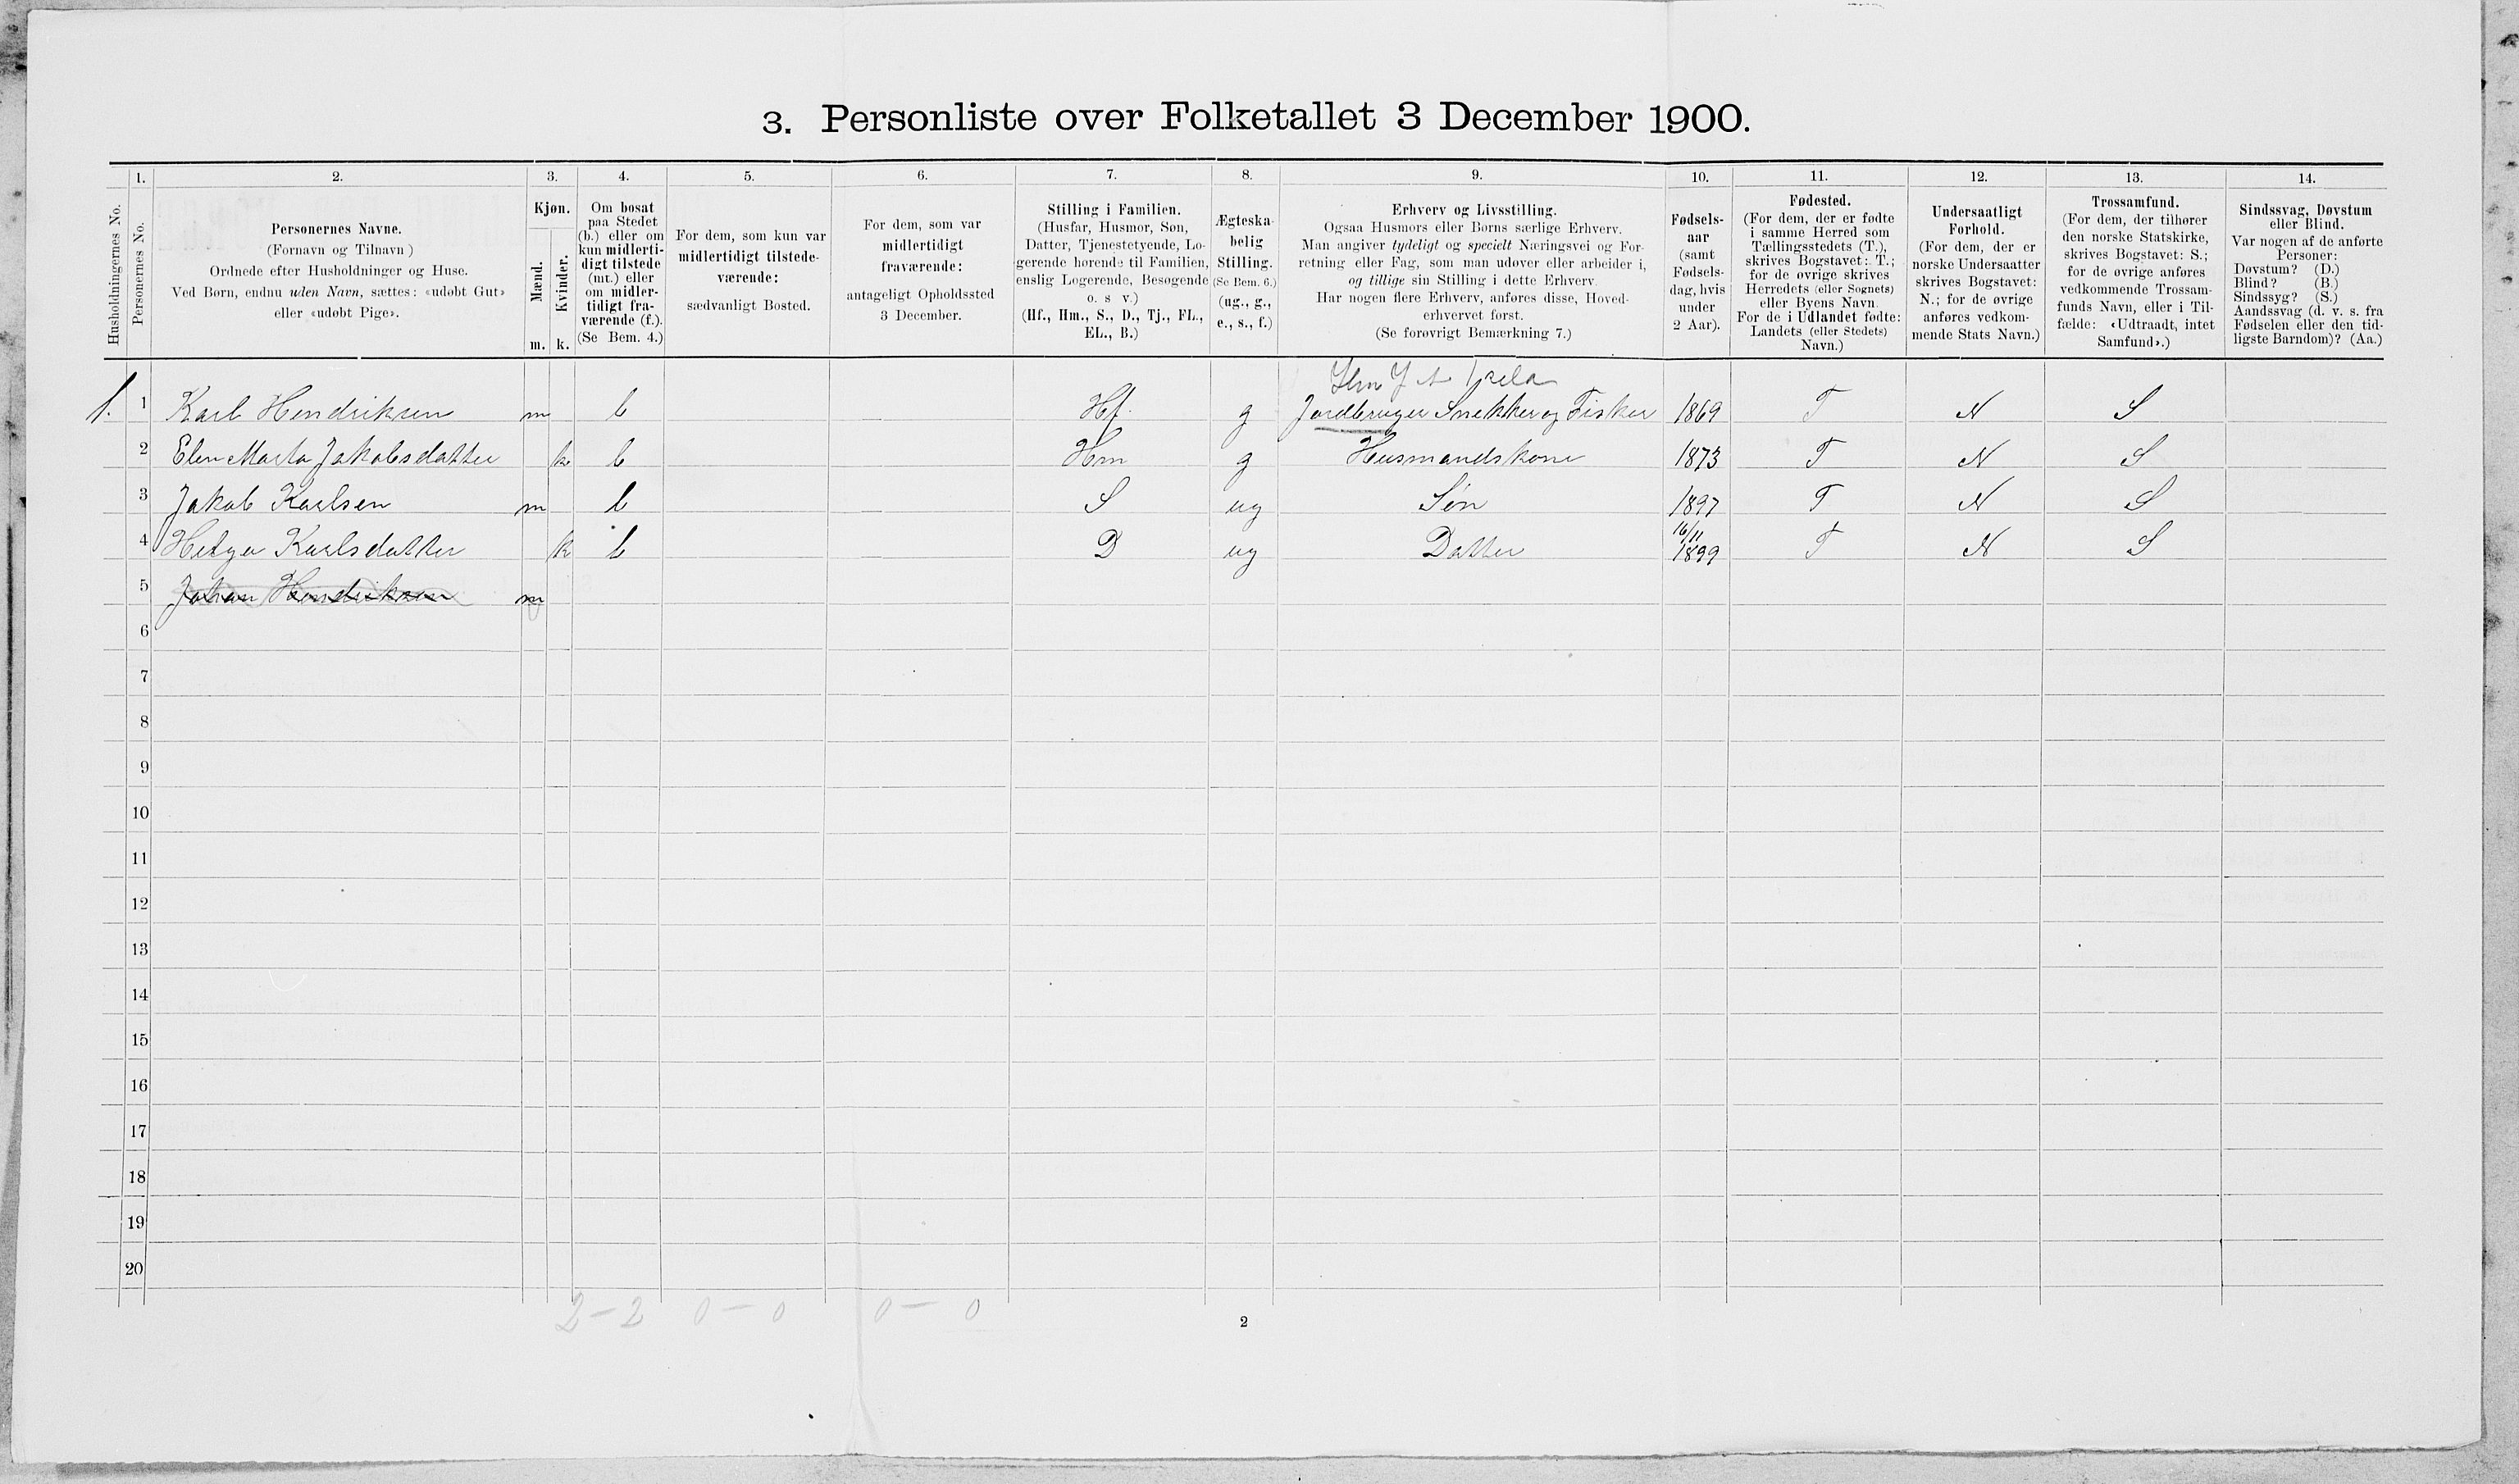 3. Personliste over Folketallet 3 December 1900.
1. 2. 3. 4. 5. 6. 7. 8. 9. 10. 11. 12. 13. 14.
Husholdningernes No.
Personernes No.
Personernes Navne.
(Fornavn og Tilnavn)
Ordnede efter Husholdninger og Huse.
Ved Børn, endnu uden Navn, sættes: «udøbt Gut»
eller «udøbt Pige».
Kjøn.
Mænd.
Kvinder.
m. k.
Om bosat
paa Stedet
(b.) eller om
kun midlerti-
digt tilstede
(mt.) eller
om midler-
tidigt fra-
værende (f.).
(Se Bem. 4.)
For dem, som kun var
midlertidigt tilstede-
værende:
sædvanligt Bosted.
For dem, som var
midlertidigt
fraværende:
antageligt Opholdssted
3 December.
Stilling i Familien.
(Husfar, Husmor, Søn,
Datter, Tjenestetyende, Lo-
gerende hørende til Familien,
enslig Logerende, Besøgende
o. s v.)
(Hf., Hm., S., D., Tj., FL.,
EL., B.)
Ægteska-
belig
Stilling.
(Se Bem. 6.)
(ug., g.,
e., s., f.)
Erhverv og Livsstilling.
Ogsaa Husmors eller Børns særlige Erhverv.
Man angiver tydeligt og specielt Næringsvei og For-
retning eller Fag, som man udøver eller arbeider i,
og tillige sin Stilling i dette Erhverv.
Har nogen flere Erhverv, anføres disse, Hoved-
erhvervet først.
(Se forøvrigt Bemærkning 7.)
Fødsels-
aar
(samt
Fødsels-
dag, hvis
under
2 Aar).
Fødested.
(For dem, der er fødte
i samme Herred som
Tællingsstedets (T.),
skrives Bogstavet: T.;
for de øvrige skrives
Herredets (eller Sognets)
eller Byens Navn.
For de i Udlandet fødte:
Landets (eller Stedets)
Navn.)
Undersaatligt
Forhold.
(For dem, der er
norske Undersaatter
skrives Bogstavet:
N.; for de øvrige
anføres vedkom-
mende Stats Navn.)
Trossamfund.
(For dem, der tilhører
den norske Statskirke,
skrives Bogstavet: S.;
for de øvrige anføres
vedkommende Trossam-
funds Navn, eller i Til-
fælde: «Udtraadt, intet
Samfund».)
Sindssvag, Døvstum
eller Blind.
Var nogen af de anførte
Personer:
Døvstum? (D.)
Blind? (B.)
Sindssyg? (S.)
Aandssvag (d. v. s. fra
Fødselen eller den tid-
ligste Barndom)? (Aa.)
1. 1 Karl Hendriksen m b Hf. g Jordbruger Snekker og Fisker 1869 T N S
2 Elen Marta Jakobsdatter k b Hm g Husmandskone 1873 T N S
3 Jakob Karlsen m b S ug Søn 1897 T N S
4 Helga Karlsdatter k b D ug Datter 16/11 1899 T N S
5 Johan Hendriksen m
6
7
8
9
10
11
12
13
14
15
16
17
18
19
20
2 – 2 0 – 0 0 – 0
2